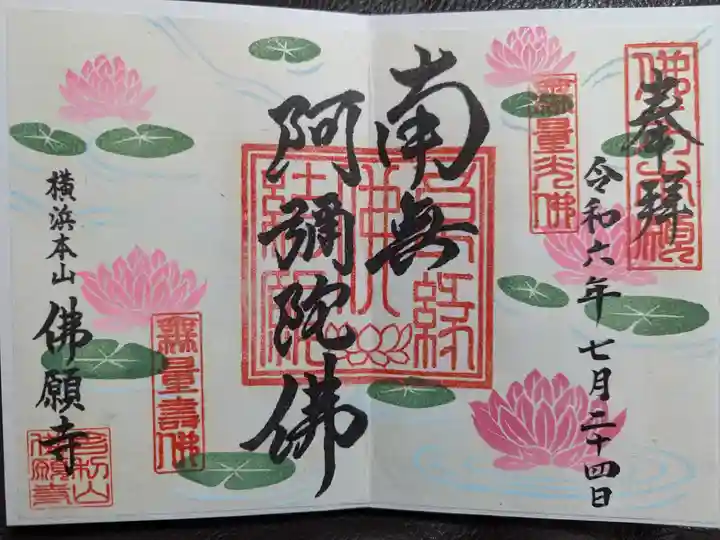 奉拜
令和六年七月二十四日
無量光佛
南無
阿彌陀佛
無量壽佛
横浜本山
佛願寺